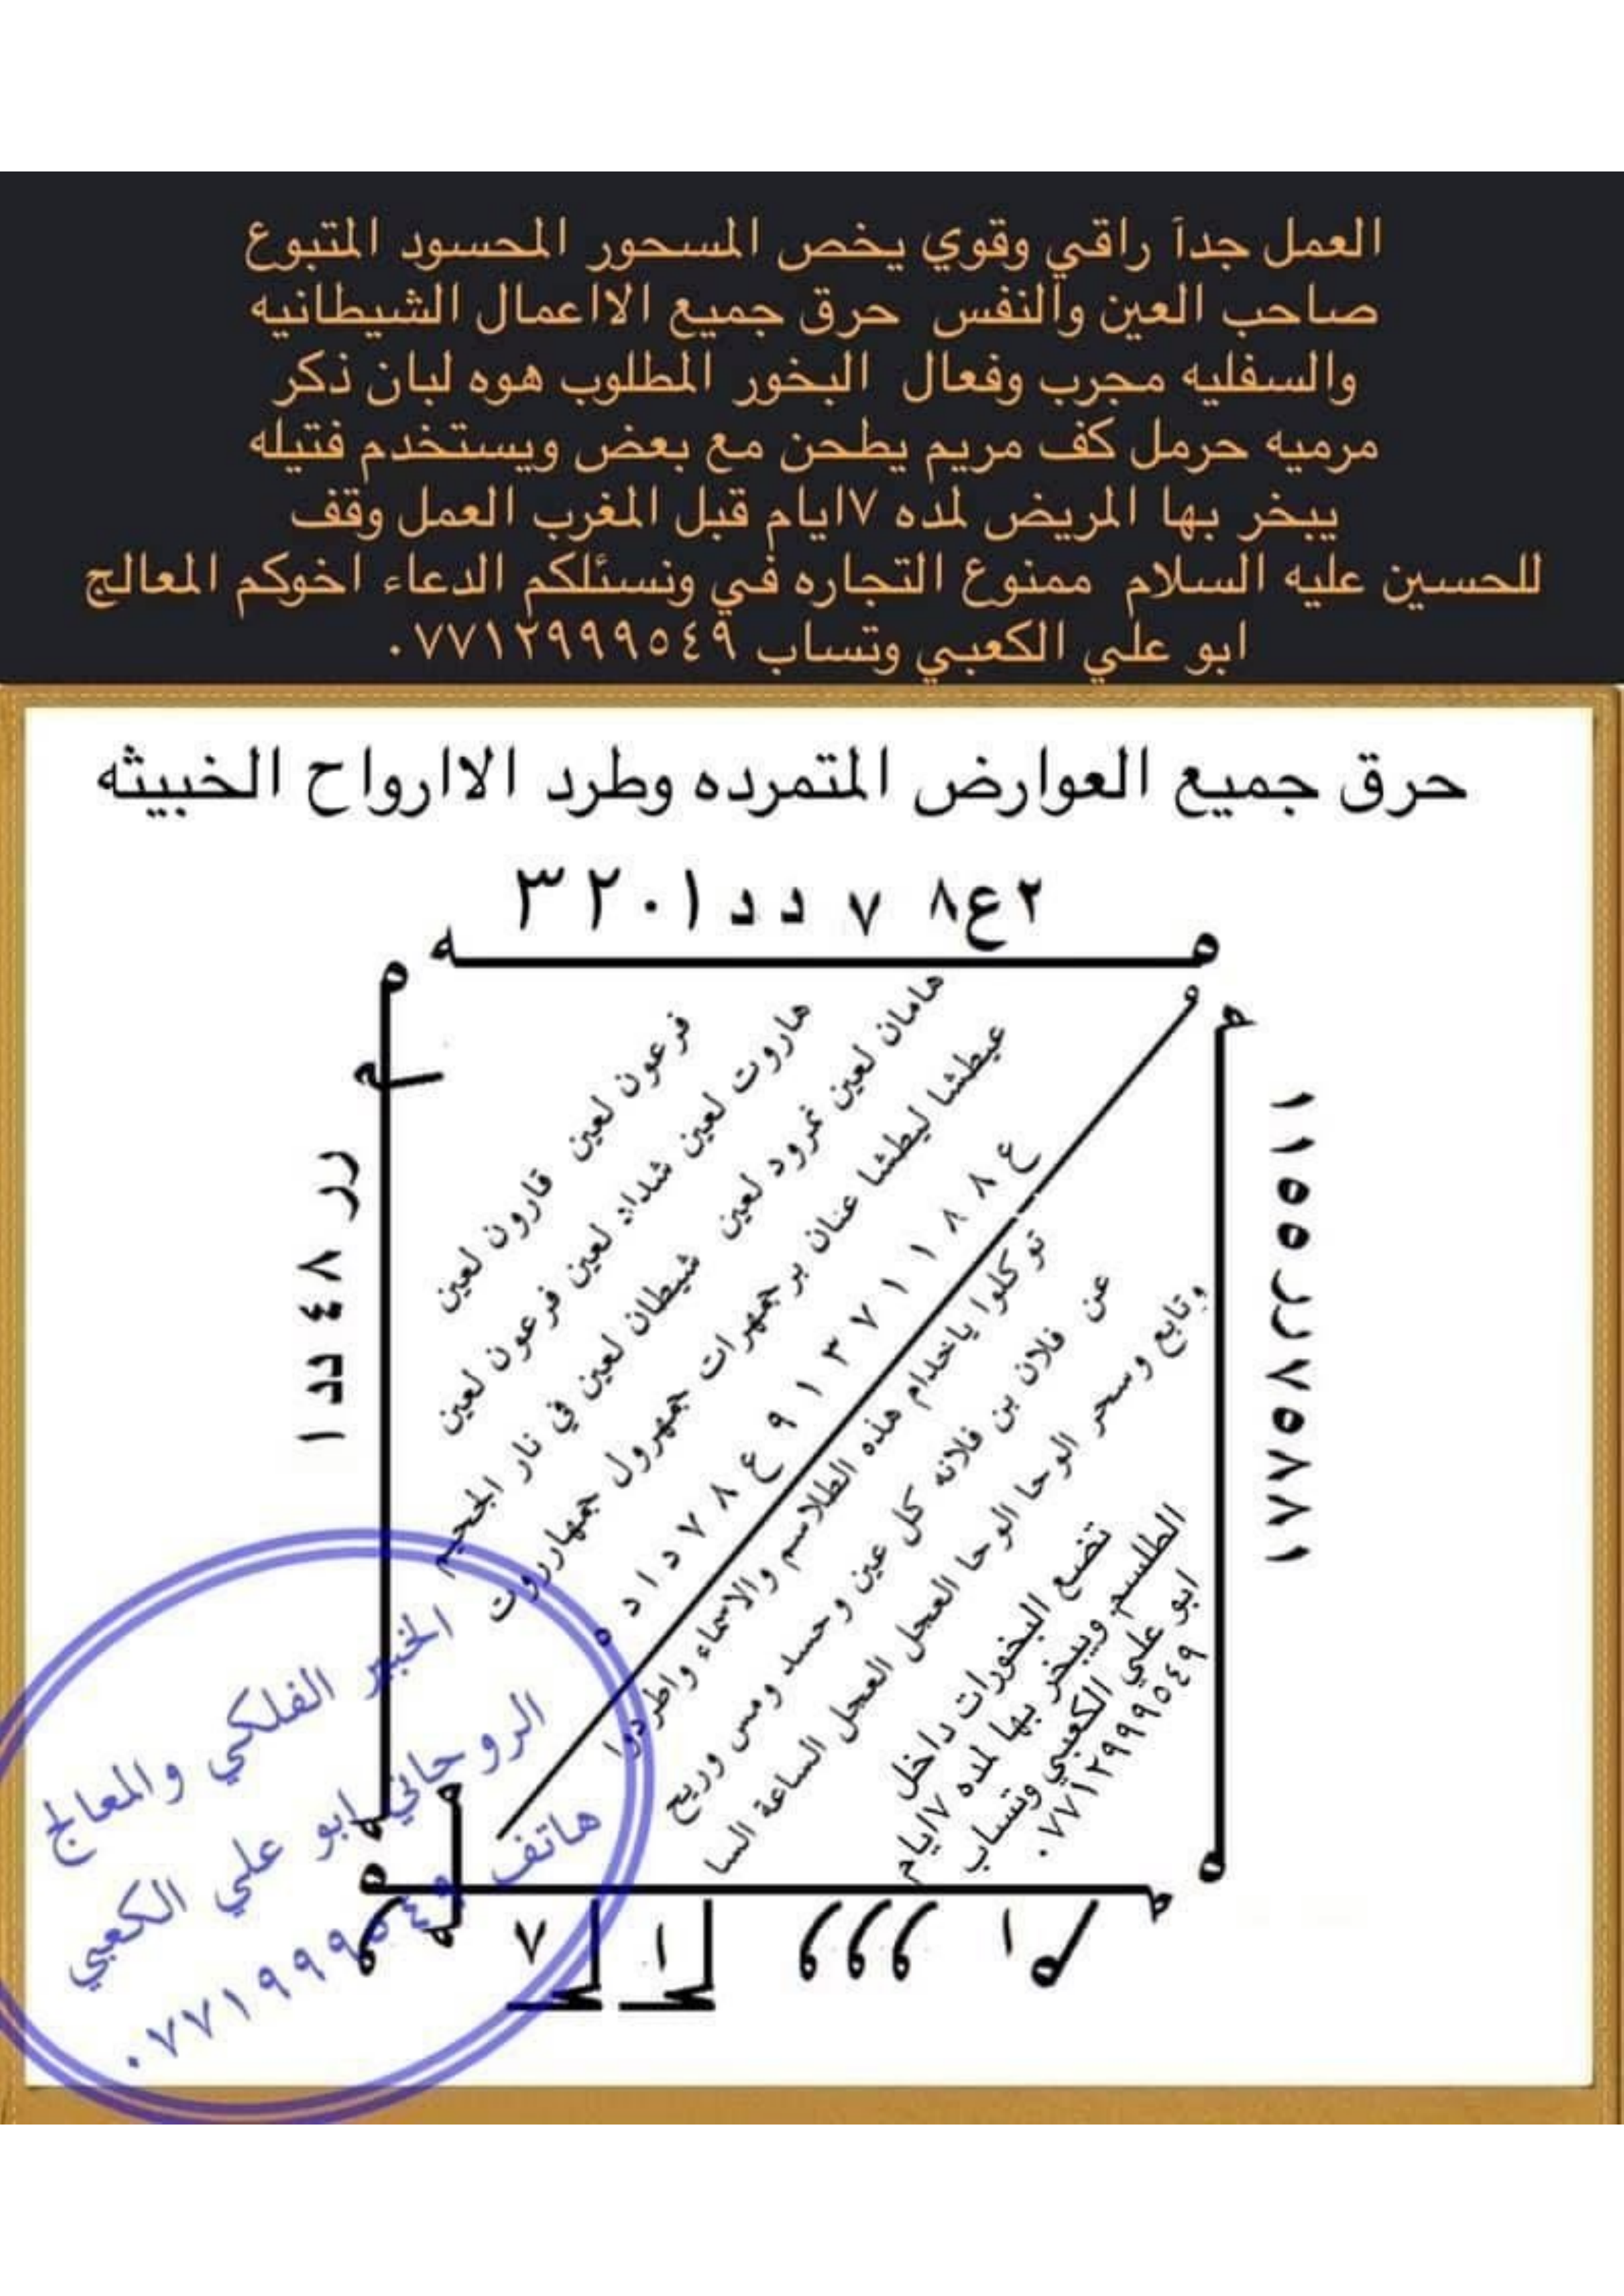 العمل جداً راقي وقوي يخص المسحور المحسود المتبوع
صاحب العين والنفس حرق جميع الااعمال الشيطانيه
والسفليه مجرب وفعال البخور المطلوب هوه لبان ذكر
مرميه حرمل كف مريم يطحن مع بعض ويستخدم فتيله
يبخر بها المريض لمده ٧ايام قبل المغرب العمل وقف
للحسين عليه السلام ممنوع التجاره في ونسئلكم الدعاء اخوكم المعالج
ابو علي الكعبي وتساب ٠٧٧١٢٩٩٩٥٤٩
حرق جميع العوارض المتمرده وطرد الاارواح الخبيثه
٢ع٨ ٧ د د ١ ٠ ٢ ٣
فرعون لعين قارون لعين
هاروت لعين شداد لعين فرعون لعين
هامان لعين نمرود لعين شيطان لعين في نار الجحيم
عيطشا ليطشا عنان بر جمهرات جمهرول جمهارروت
ع ٨ ٨ ١ ١ ٧ ٣ ١ ٩ ع ٨ ٧ د ا د ه
توكلوا ياخدام هذه الطلاسم والاسماء واطردوا
عن فلان بن فلانه كل عين وحسد ومس وريح
وتابع وسحر الوحا الوحا العجل العجل الساعة السا
تضع البخورات داخل
الطلسم ويبخر بها لمده ٧ايام
ابو علي الكعبي وتساب
٠٧٧١٢٩٩٩٥٤٩
١ ١ ٥ ٥ رر ٧ ٥ ٨ ٨ ٨ ١
رر ٨ ٤ دد ١
الخبير الفلكي والمعالج
الروحاني ابو علي الكعبي
هاتف